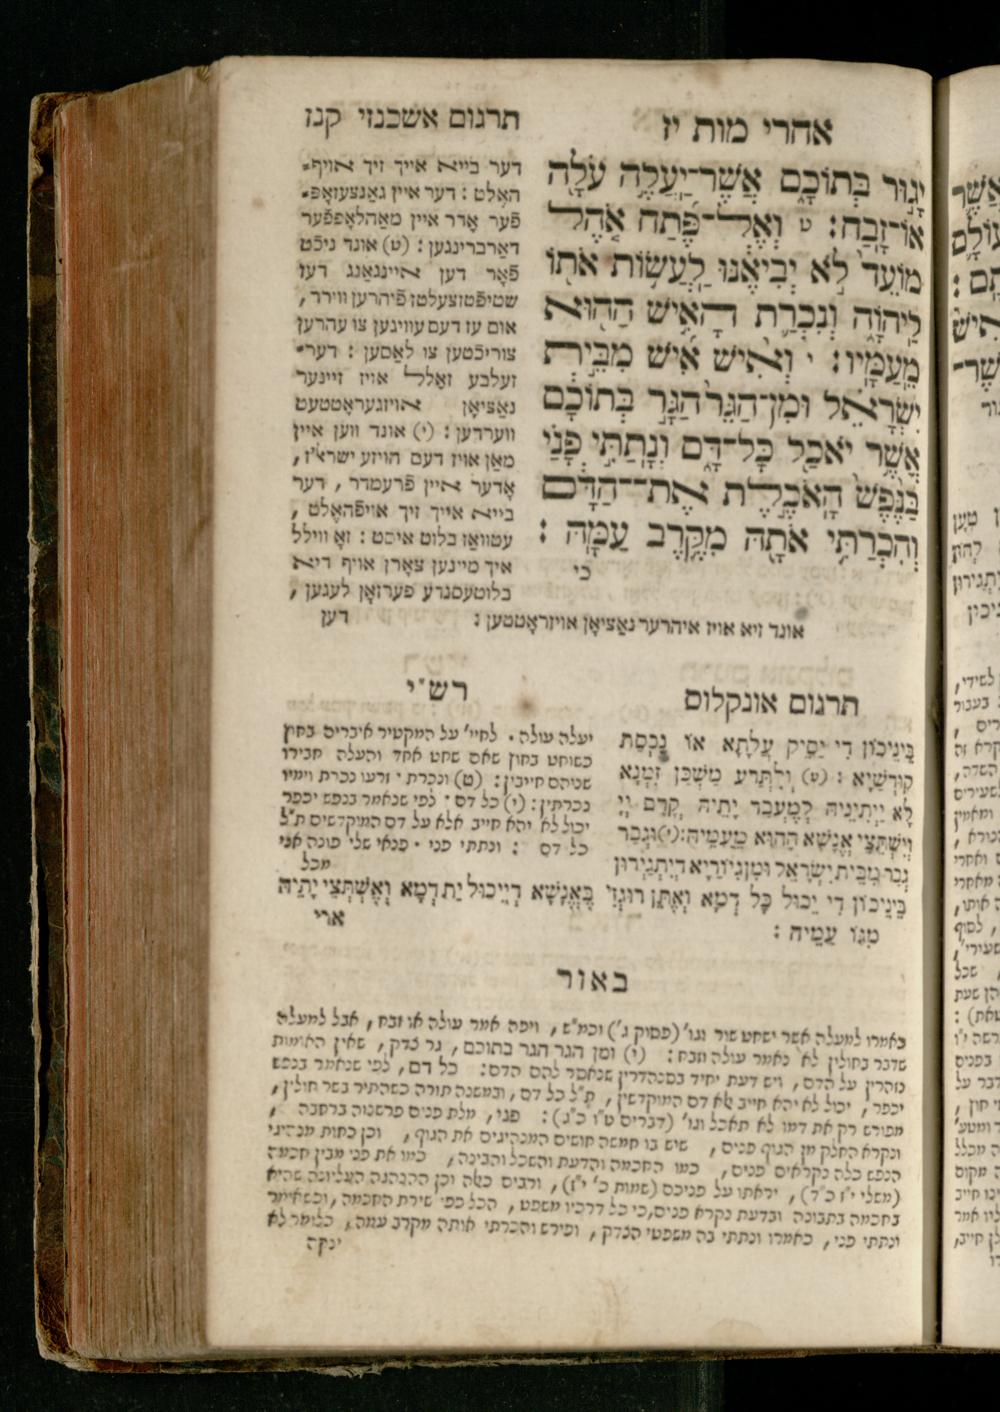 אחרי מות יז
תרגום אשכנזי קנז
יָג֣וּר בְּתוֹכָ֑ם אֲשֶׁר־יַֽעֲלֶ֥ה עֹלָ֖ה
אוֹ־זָֽבַח׃ ט וְאֶל־פֶּ֜תַח אֹ֤הֶל
מוֹעֵד֙ לֹ֣א יְבִיאֶ֔נּוּ לַֽעֲשׂ֥וֹת אֹת֖וֹ
לַֽיהֹוָ֑ה וְנִכְרַ֛ת הָאִ֥ישׁ הַה֖וּא
מֵֽעַמָּֽיו׃ י וְאִ֨ישׁ אִ֜ישׁ מִבֵּ֣ית
יִשְׂרָאֵ֗ל וּמִן־הַגֵּר֙ הַגָּ֣ר בְּתוֹכָ֔ם
אֲשֶׁ֥ר יֹאכַ֖ל כָּל־דָּ֑ם וְנָֽתַתִּ֣י פָנַ֗י
בַּנֶּ֙פֶשׁ֙ הָֽאֹכֶ֣לֶת אֶת־הַדָּ֔ם
וְהִכְרַתִּ֥י אֹתָ֖הּ מִקֶּ֥רֶב עַמָּֽהּ׃
כי
דער בייא אייך זיך אויף־
האַלט : דער איין גאַנצעזאָפּ־
פֿער אָדר איין מאַהלאָפּפֿער
דאַרברינגען : (ט) אונד ניכֿט
פֿאָר דען איינגאַנג דעז
שטיפֿטסצעלטן פֿיהרען ווירד ,
אום עז דעם עוויגען צו עהרען
צוריכֿטען צו לאַסען : דער־
זעלבע זאָלל אויז זיינער
נאַציאָן אויזגעראָטטעט
ווערדען : (י) אונד ווען איין
מאַן אויז דעם הויזע ישראל'ז ,
אָדער איין פֿרעמדר , דער
בייא אייך זיך אויפֿהאַלט ,
עטוואַז בלוט איסט : זאָ ווילל
איך מיינען צאָרן אויף דיא
בלוטעסנדע פּערזאָן לעגען ,
אונד זיא אויז איהרער נאַציאָן אויזראָטטען :
דען
תרגום אונקלוס
בֵּינֵיכוֹן דִי יַסֵּיק עֲלָתָא אוֹ נִכְסַת
קוּדְשַׁיָא : (ט) וְלִתְרַע מַשְׁכַּן זִמְנָא
לָא יַיְתִינֵיהּ לְמֶעְבַּד יָתֵיהּ קֳדָם יְיָ
וְיִשְׁתֵּצֵי אֱנָשָׁא הַהוּא מֵעַמֵיהּ:(י)וּגְבַר
גְבַר מִבֵּית יִשְׂרָאֵל וּמִן גִיוֹרַיָא דְיִתְגַיְירוּן
בֵּינֵיכוֹן דִי יֵכוּל כָּל דְמָא וְאֶתֵּן רוּגְזִי בֶּאֱנָשָׁא דְיֵיכוּל יַת דְמָא וְאֶשְׁתֵּצֵי יָתֵיהּ
מִגוֹ עַמֵיהּ :
ארי
רש״י
יעלה עולה . לחייי' על המקטיר איברים בחוץ
כשוחט בחוץ שאם שחט אחד והעלה חבירו
שניהם חייבין: (ט) ונכרת . זרעו נכרת וימיו
נכרתין: (י) כל דם . לפי שנאמר בנפש יכפר
יכול לא יהא חייב אלא על דם המוקדשים ת״ל
כל דם : ונתתי פני . פנאי שלי פונה אני
מכל
באור
באמרו למעלה אשר ישחט שור וגו' (פסוק ג') וכמ״ש , ויפה אמר עולה או זבח , אבל למעלה
שדבר בחולין לא נאמר עולה וזבח : (י) ומן הגר הגר בתוכם , גר צדק , שאין האומות
נזהרין על הדם , ויש דעת יחיד בסנהדרין שנאסר להם הדם : כל דם , לפי שנאמר בנפש
יכפר , יכול לא יהא חייב אלא דם המוקדשין , ת״ל כל דם , ובמשנה תורה כשהתיר בשר חולין ,
מפורש רק את דמו לא תאכל וגו' (דברים ט״ו כ״ג) : פני , מלת פנים פרשנוה ברחבה ,
ונקרא החלק מן הגוף פנים , שיש בו חמשה חושים המנהיגים את הגוף , וכן כחות מנהיגי
הנפש כלה נקראים פנים , כמו החכמה והדעת והשכל והבינה , כמו את פני מבין חכמה
(משלי י״ז כ״ד) , יראתו על פניכם (שמות כ' י״ז) , ורבים כאלה וכן ההנהגה העליונה שהיא
בחכמה בתבונה ובדעת נקרא פנים,כי כל דרכיו משפט , הכל כפי שירת החכמה , וכשאימר
ונתתי פני , כאמרו ונתתי בה משפטי הצדק , ופירש והכרתי אותה מקרב עמה , כלומר לא
ינקה